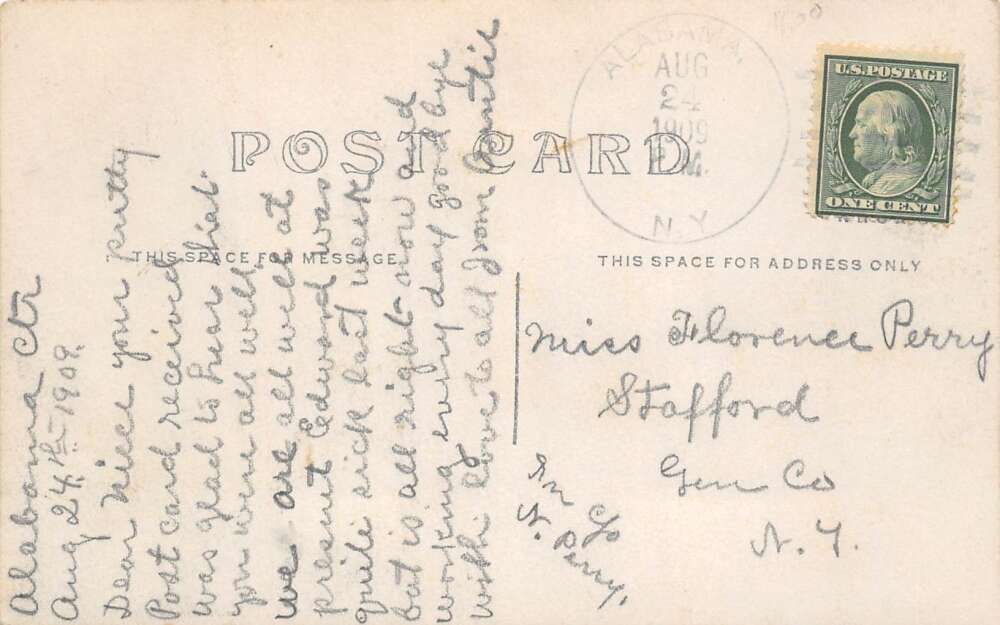 POST CARD
THIS SPACE FOR MESSAGE
THIS SPACE FOR ADDRESS ONLY
ALABAMA,
AUG
24
1909
P.M.
N.Y.
U.S. POSTAGE
ONE CENT
Alabama Ctr
Aug 24.th 1909.
Dear Niece your pretty
Post card received
was glad to hear that
you were all well,
we are all well at
present Edward was
quite sick last week
but is all right now and
working every day good bye
with love to all from Auntie
Miss Florence Perry
Stafford
Gen Co
N.Y.
In C/o
N. Perry,